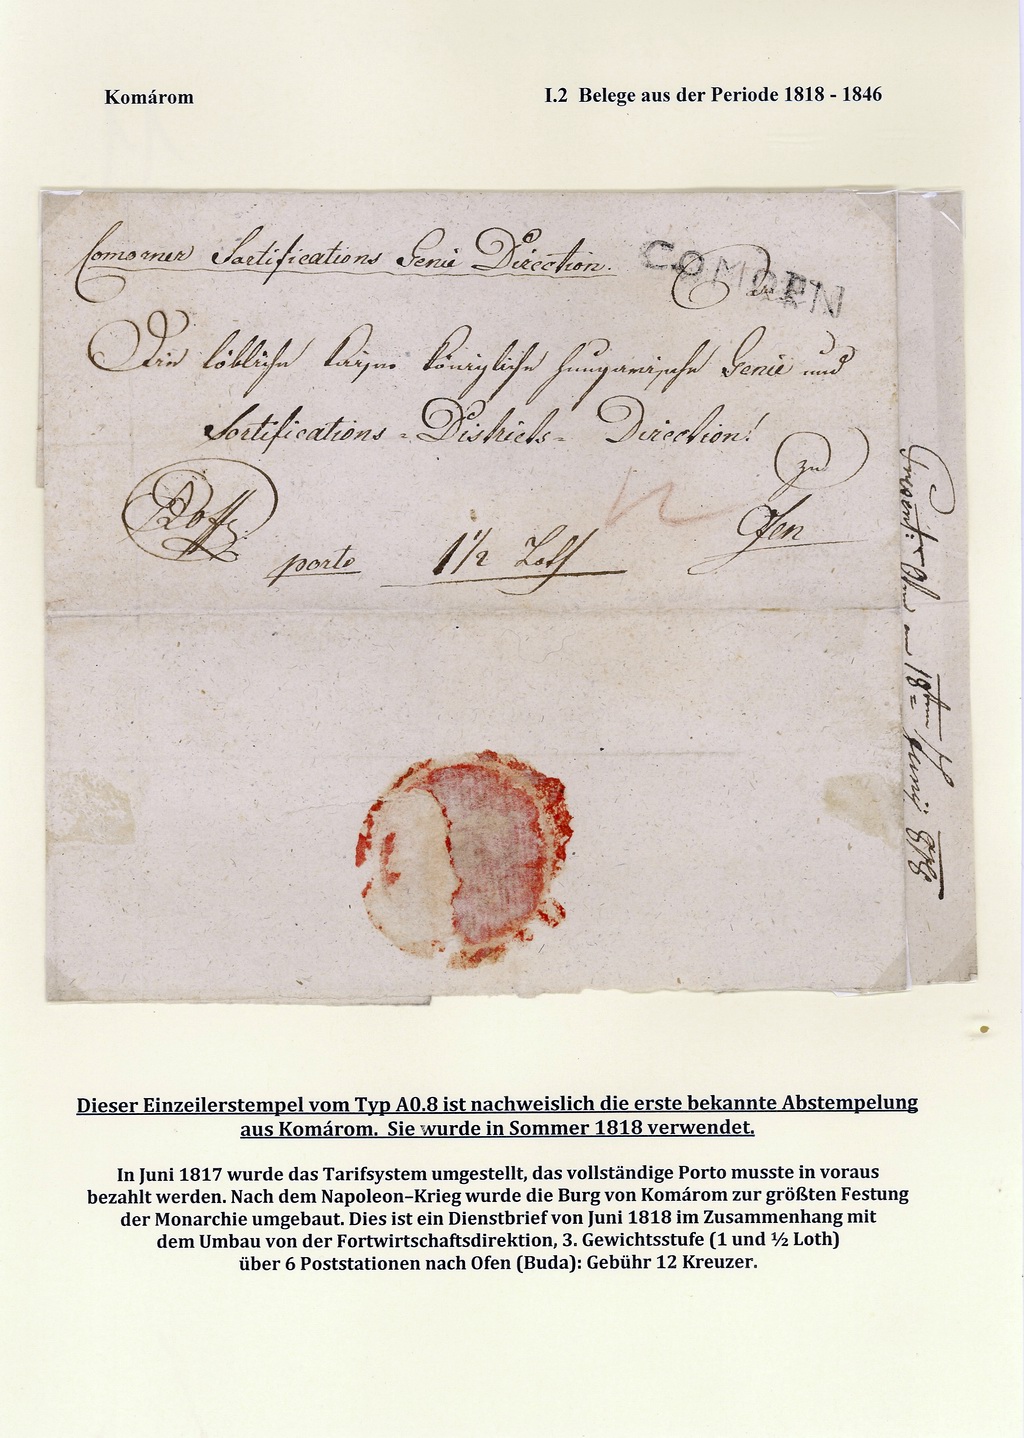 Komárom
I.2 Belege aus der Periode 1818 - 1846
Comorner Fortifications Genie Direction.
COMORN
An
Eine löbliche kaiser königliche hungarische Genie und
Fortifications = Districts = Direction!
zu
Ofen
porto 1 1/2 Loth
12
Dieser Einzeilerstempel vom Typ A0.8 ist nachweislich die erste bekannte Abstempelung
aus Komárom. Sie wurde in Sommer 1818 verwendet.
In Juni 1817 wurde das Tarifsystem umgestellt, das vollständige Porto musste in voraus
bezahlt werden. Nach dem Napoleon–Krieg wurde die Burg von Komárom zur größten Festung
der Monarchie umgebaut. Dies ist ein Dienstbrief von Juni 1818 im Zusammenhang mit
dem Umbau von der Fortwirtschaftsdirektion, 3. Gewichtsstufe (1 und ½ Loth)
über 6 Poststationen nach Ofen (Buda): Gebühr 12 Kreuzer.